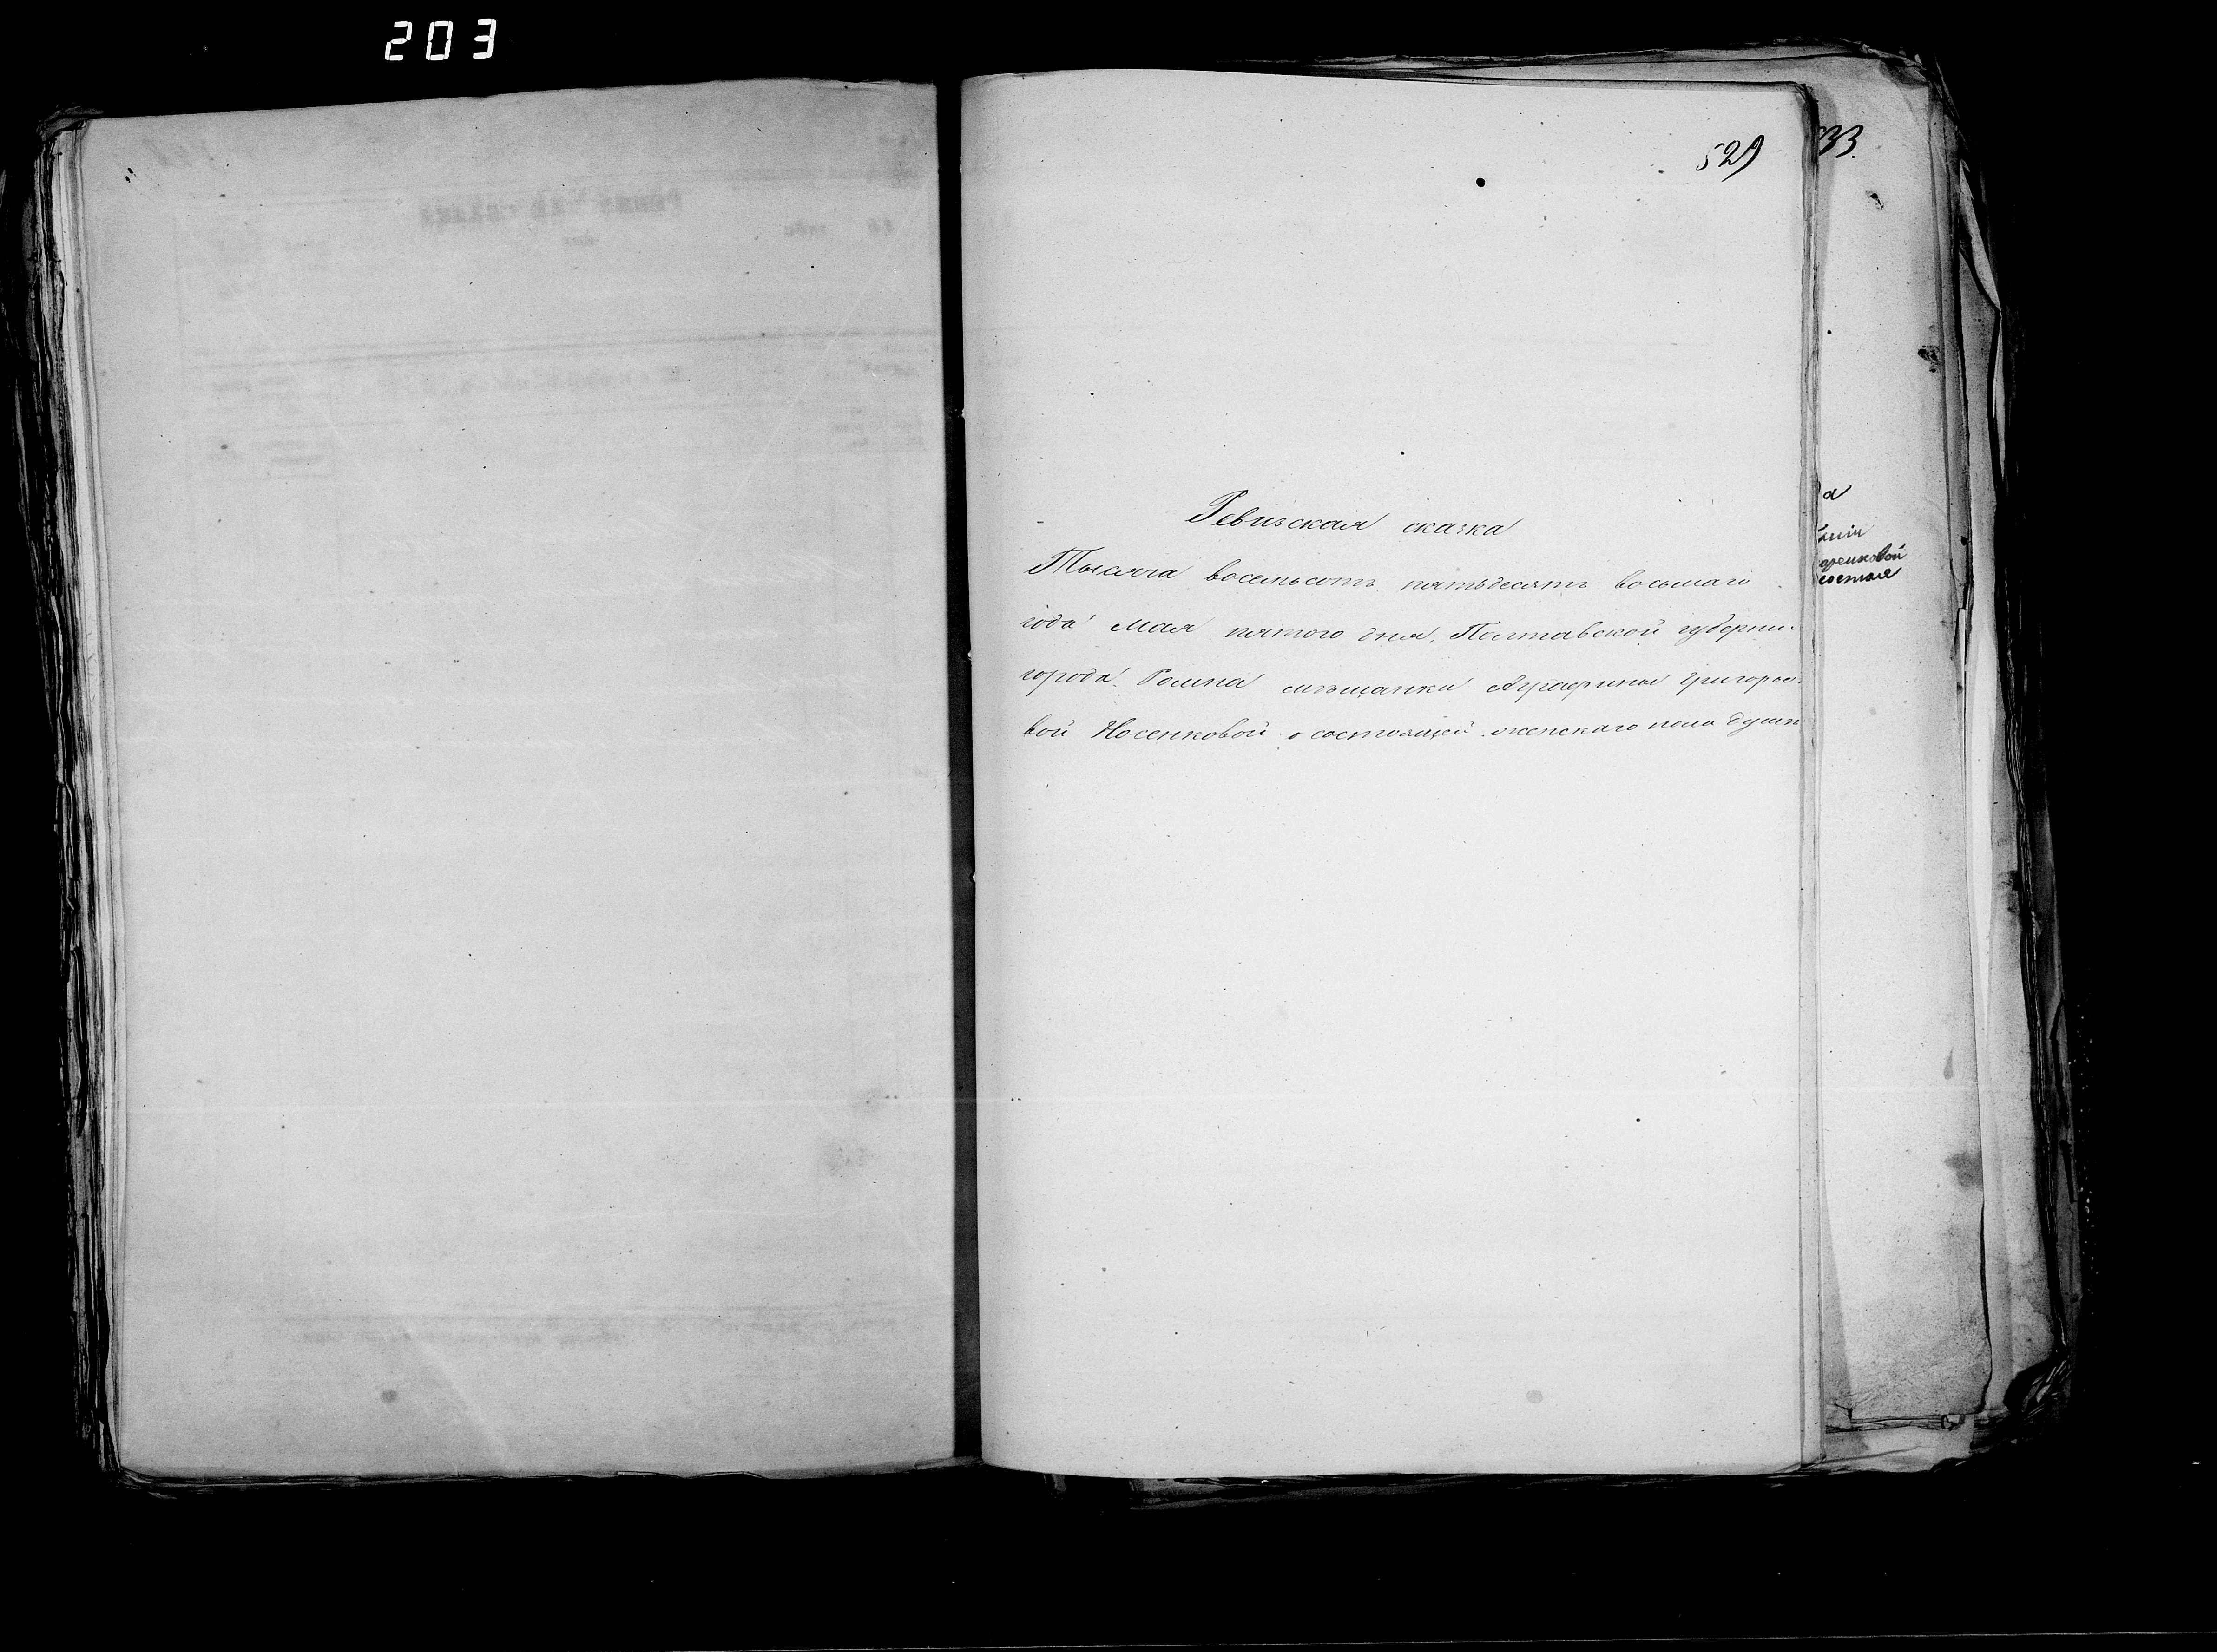 203
529
33.
Ревизская сказка
Тысяча восемьсотъ пятьдесятъ восьмаго
года Мая пятого дня, Полтавской губерніи
города Ромна мѣщанки Аграфины Григорье-
вой Носенковой о состоящей женскаго пола душѣ
а